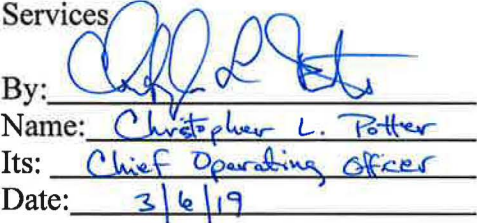 Services
By:
Name: Christopher L. Potter
Its: Chief Operating Officer
Date: 3/6/19